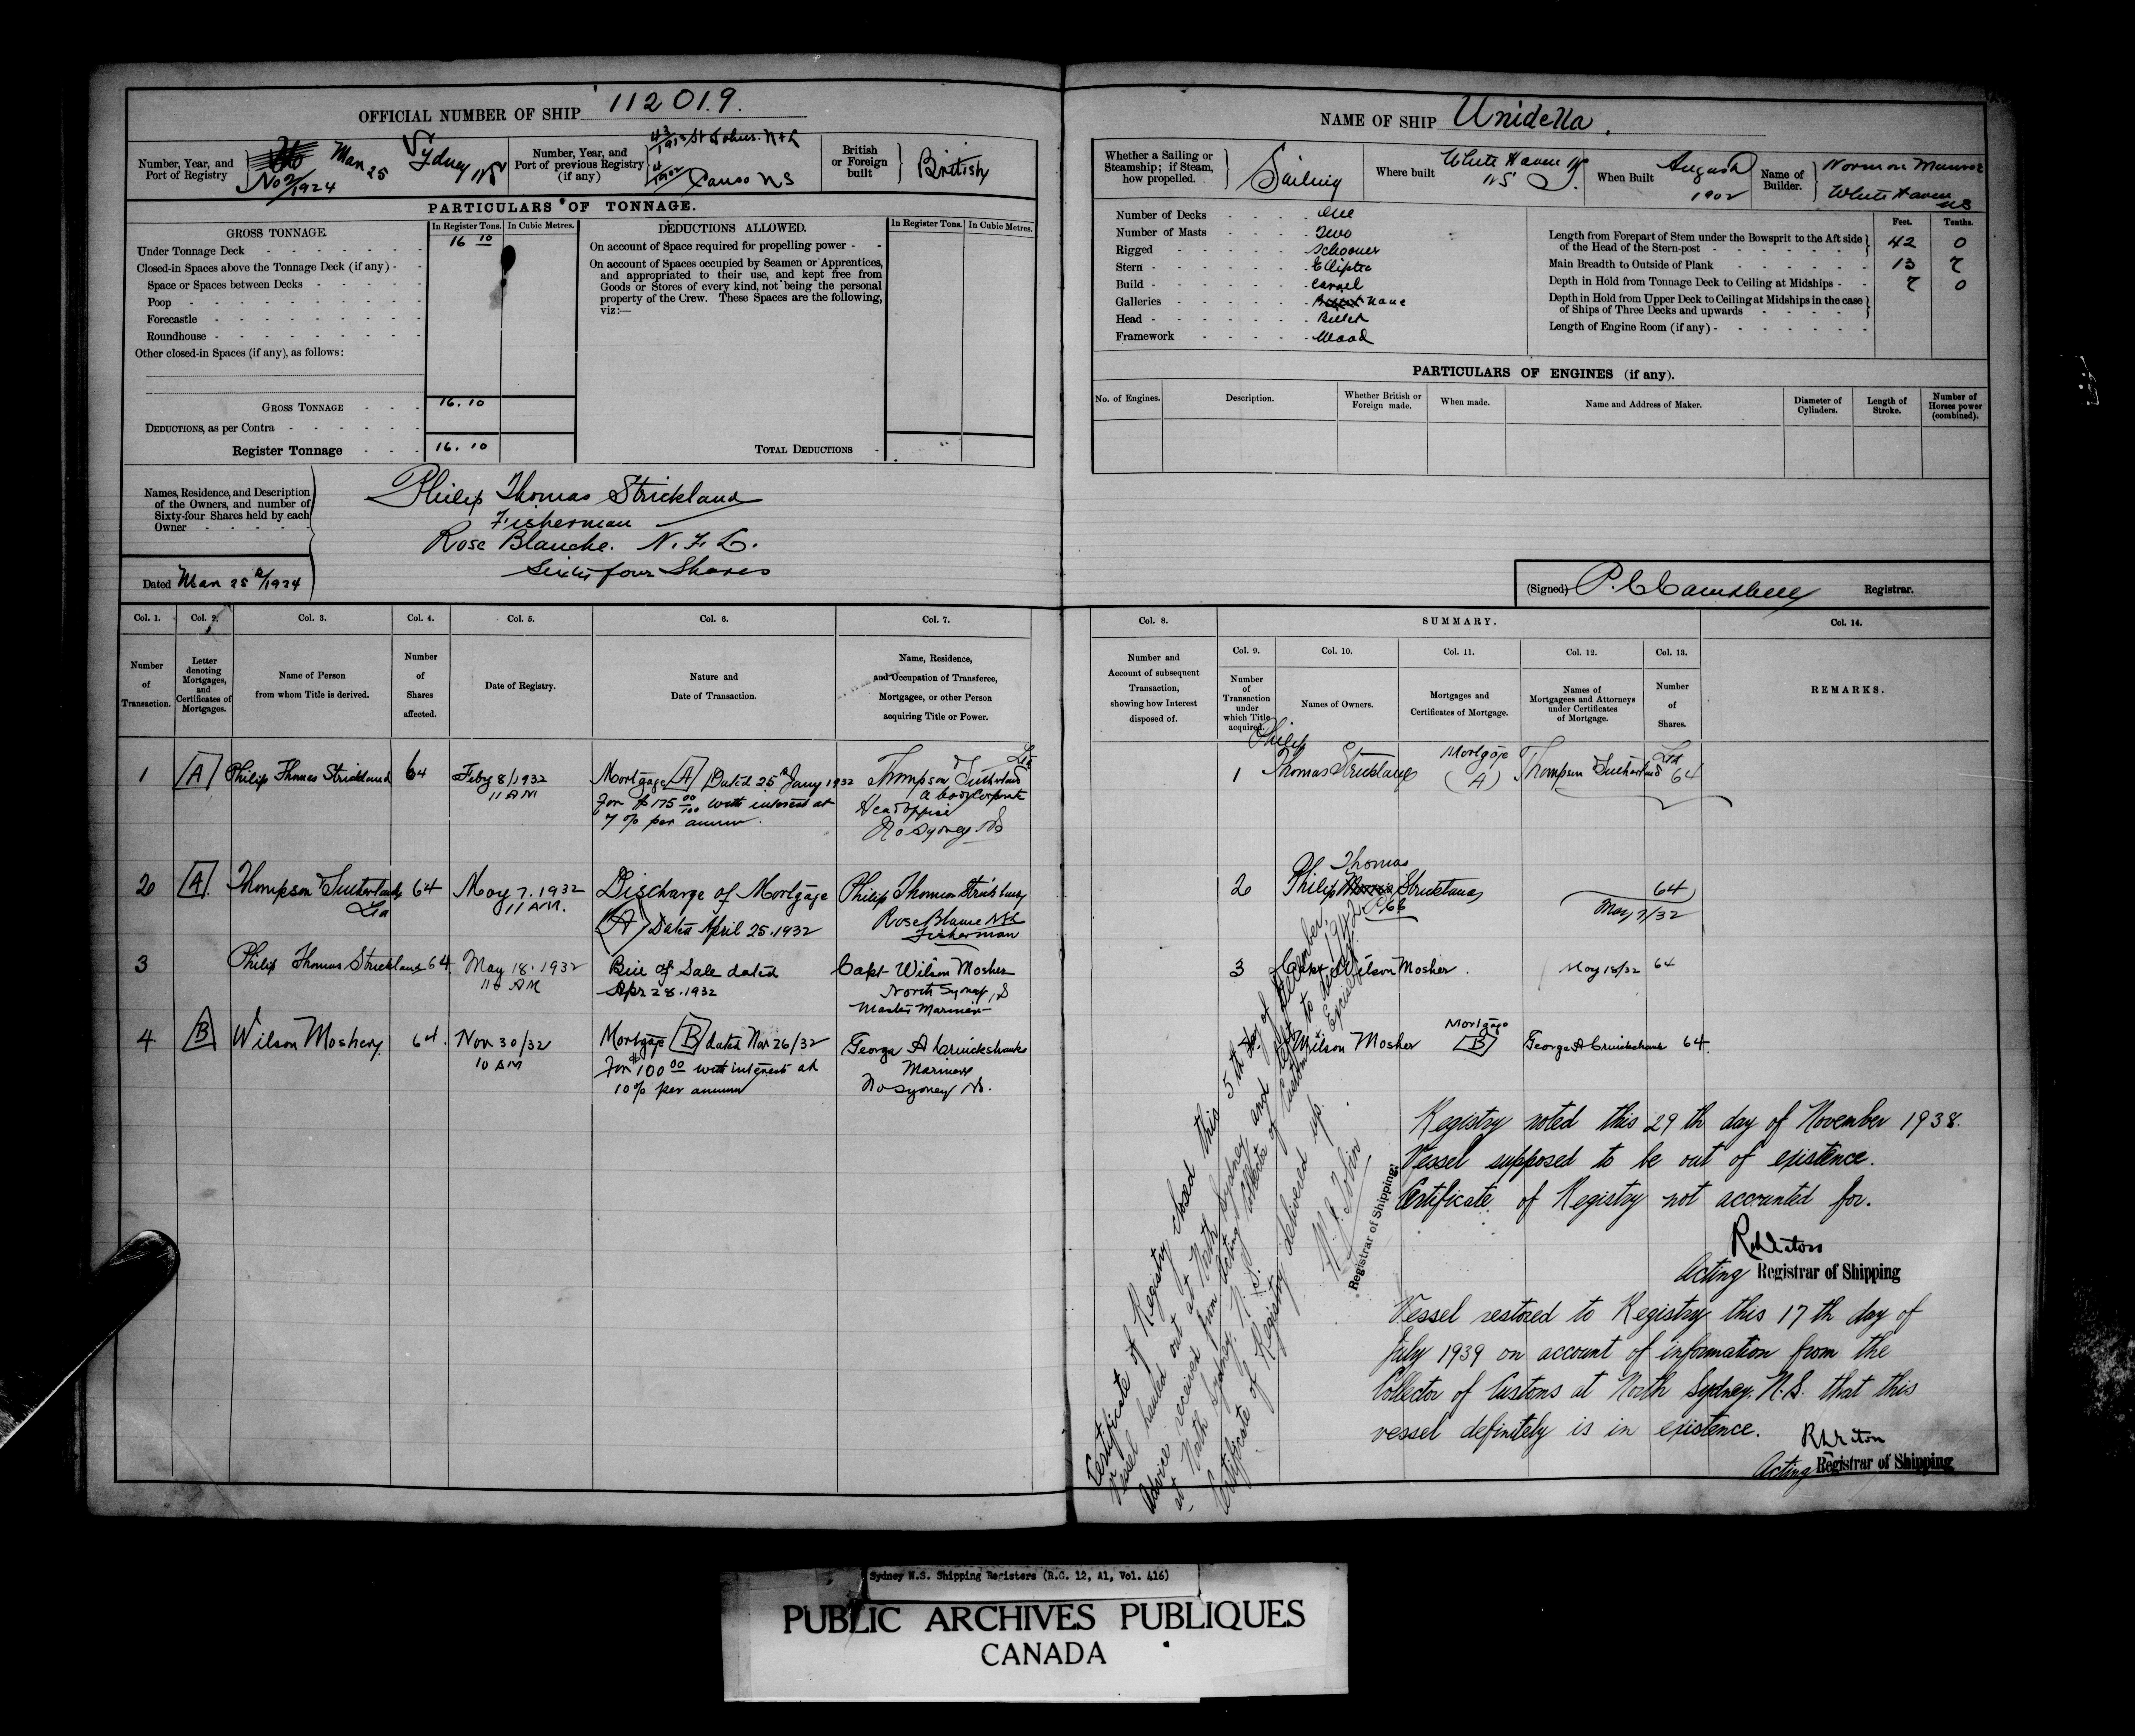 OFFICIAL NUMBER OF SHIP 112019.
Number, Year, and Port of Registry
No 2/1924 Mar 25 Sydney NS
Number, Year, and Port of previous Registry (if any)
43/1915 St Johns. Nfld
4/1902 Canso NS
British or Foreign built
British
PARTICULARS OF TONNAGE.
GROSS TONNAGE.
In Register Tons. In Cubic Metres.
DEDUCTIONS ALLOWED.
In Register Tons. In Cubic Metres.
Under Tonnage Deck 16 10
Closed-in Spaces above the Tonnage Deck (if any)
Space or Spaces between Decks
Poop
Forecastle
Roundhouse
Other closed-in Spaces (if any), as follows:
On account of Space required for propelling power
On account of Spaces occupied by Seamen or Apprentices,
and appropriated to their use, and kept free from
Goods or Stores of every kind, not being the personal
property of the Crew. These Spaces are the following,
viz:—
GROSS TONNAGE 16.10
DEDUCTIONS, as per Contra
Register Tonnage 16.10
TOTAL DEDUCTIONS
Names, Residence, and Description
of the Owners, and number of
Sixty-four Shares held by each
Owner
Philip Thomas Strickland
Fisherman
Rose Blanche. N.F.L.
Sixty four Shares
Dated Mar 25th/1924
Col. 1. Col. 2. Col. 3. Col. 4. Col. 5. Col. 6. Col. 7.
Number of Transaction.
Letter denoting Mortgages, and Certificates of Mortgages.
Name of Person from whom Title is derived.
Number of Shares affected.
Date of Registry.
Nature and Date of Transaction.
Name, Residence, and Occupation of Transferee, Mortgagee, or other Person acquiring Title or Power.
1 A Philip Thomas Strickland 64 Feby 8/1932
11 AM
Mortgage A Dated 25th Jany 1932
for $175 00/100 with interest at
7% per annum.
Thompson & Sutherland Ltd
a body corporate
Head office
No Sydney NS
2 A Thompson & Sutherland Ltd 64 May 7. 1932
11 AM.
Discharge of Mortgage
A Dated April 25. 1932
Philip Thomas Strickland
Rose Blanche Nfld
Fisherman
3 Philip Thomas Strickland 64 May 18. 1932
11 AM
Bill of Sale dated
Apr 28. 1932
Capt Wilson Mosher
North Sydney, NS
Master Mariner
4 B Wilson Mosher 64. Nov 30/32
10 AM
Mortgage B dated Nov 26/32
for $100 00 with interest at
10% per annum
George A Cruickshank
Mariner
No Sydney NS.
NAME OF SHIP Unidella.
Whether a Sailing or Steamship; if Steam, how propelled.
Sailing
Where built
White Haven
NS
When Built
August
1902
Name of Builder.
Norman Munroe
White Haven
NS
Number of Decks One
Number of Masts Two
Rigged Schooner
Stern Elliptic
Build Carvel
Galleries None
Head Billet
Framework Wood
Feet. Tenths.
Length from Forepart of Stem under the Bowsprit to the Aft side
of the Head of the Stern-post 42 0
Main Breadth to Outside of Plank 13 7
Depth in Hold from Tonnage Deck to Ceiling at Midships 7 0
Depth in Hold from Upper Deck to Ceiling at Midships in the case
of Ships of Three Decks and upwards
Length of Engine Room (if any)
PARTICULARS OF ENGINES (if any).
No. of Engines.
Description.
Whether British or Foreign made.
When made.
Name and Address of Maker.
Diameter of Cylinders.
Length of Stroke.
Number of Horses power (combined).
(Signed) P. C Campbell Registrar.
Col. 8. SUMMARY. Col. 14.
Col. 9. Col. 10. Col. 11. Col. 12. Col. 13.
Number and Account of subsequent Transaction, showing how Interest disposed of.
Number of Transaction under which Title acquired.
Names of Owners.
Mortgages and Certificates of Mortgage.
Names of Mortgagees and Attorneys under Certificates of Mortgage.
Number of Shares.
REMARKS.
1 Philip Thomas Strickland Mortgage (A) Thompson & Sutherland Ltd 64
2 Philip Thomas Strickland 64
May 7/32
3 Capt Wilson Mosher. May 18/32 64
4 Wilson Mosher Mortgage B George A Cruickshank 64.
Registry noted this 29th day of November 1938.
Vessel supposed to be out of existence.
Certificate of Registry not accounted for.
Acting Registrar of Shipping
Vessel restored to Registry this 17th day of
July 1939 on account of information from the
Collector of Customs at North Sydney. N.S. that this
vessel definitely is in existence.
Acting Registrar of Shipping
Certificate of Registry closed this 5th day of December, 1942
Vessel hauled out at North Sydney and left to decay.
Advice received from Acting Collector of Customs Excise
at North Sydney, N.S.
Certificate of Registry delivered up.
Registrar of Shipping.
Sydney N.S. Shipping Registers (R.G. 12, A1, Vol. 416)
PUBLIC ARCHIVES PUBLIQUES
CANADA